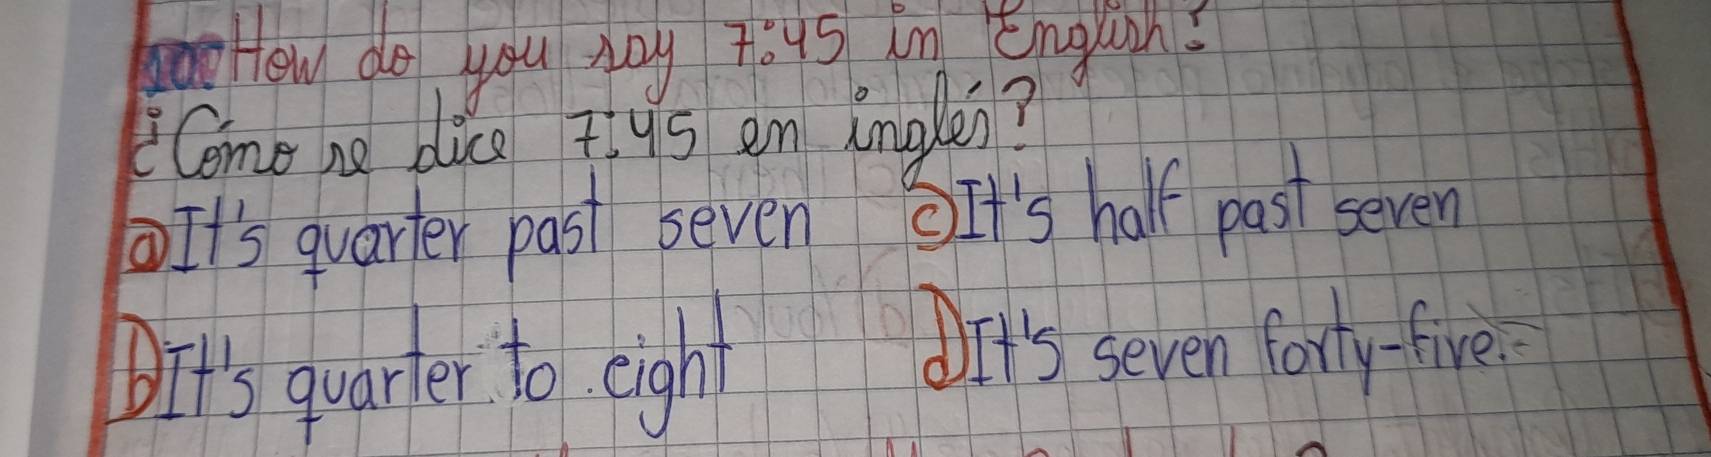 How do you say 7:45 in English?
¿Cómo se dice 7:45 en inglés?
a) It's quarter past seven c) It's half past seven
b) It's quarter to eight d) It's seven forty-five.-